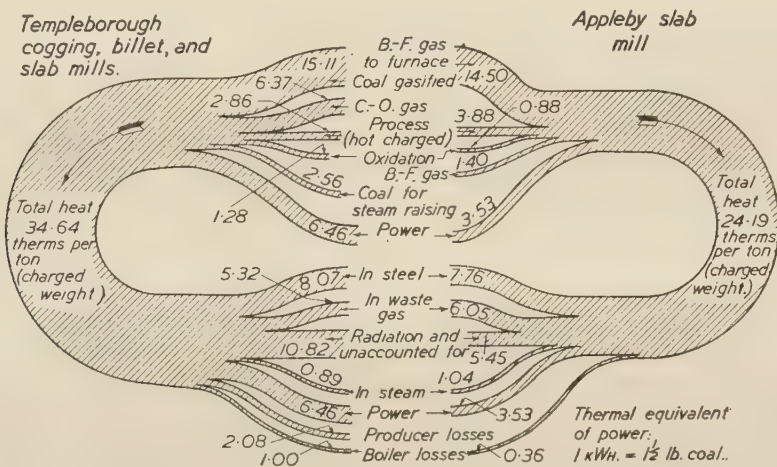 Templeborough
cogging, billet, and
slab mills.
Appleby slab
mill
B.-F. gas
to furnace
15.11
14.50
Coal gasified
6.37
C.-O. gas
2.86
3.88
0.88
Process
(hot charged)
Oxidation
1.40
B.-F. gas
2.56
Coal for
steam raising
1.28
6.46
Power
3.53
Total heat
34.64
therms per
ton
(charged
weight)
Total
heat
24.19
therms
per ton
(charged
weight.)
5.32
8.07
In steel
7.76
In waste
gas
6.05
Radiation and
unaccounted for
10.82
5.45
0.89
In steam
1.04
6.46
Power
3.53
2.08
Producer losses
1.00
Boiler losses
0.36
Thermal equivalent
of power:
1 KWH. = 1½ lb. coal..